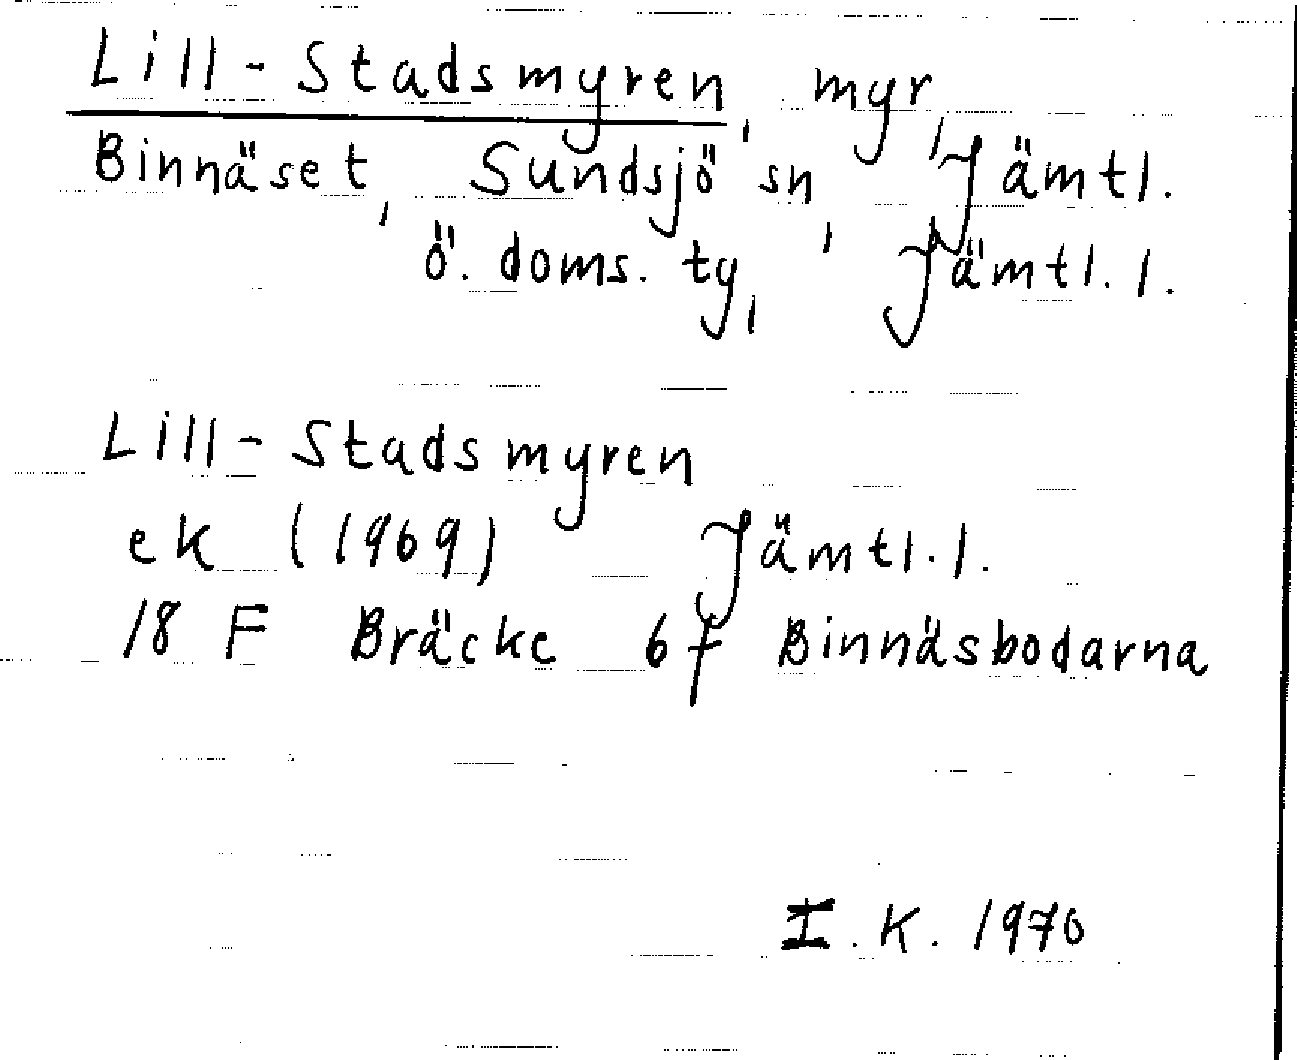 Lill-Stadsmyren, myr,
Binnäset, Sundsjö sn, Jämtl.
ö. doms. tg, Jämtl. l.
Lill-Stadsmyren
ek (1969) Jämtl. l.
18 F Bräcke 6f Binnäsbodarna
I. K. 1970